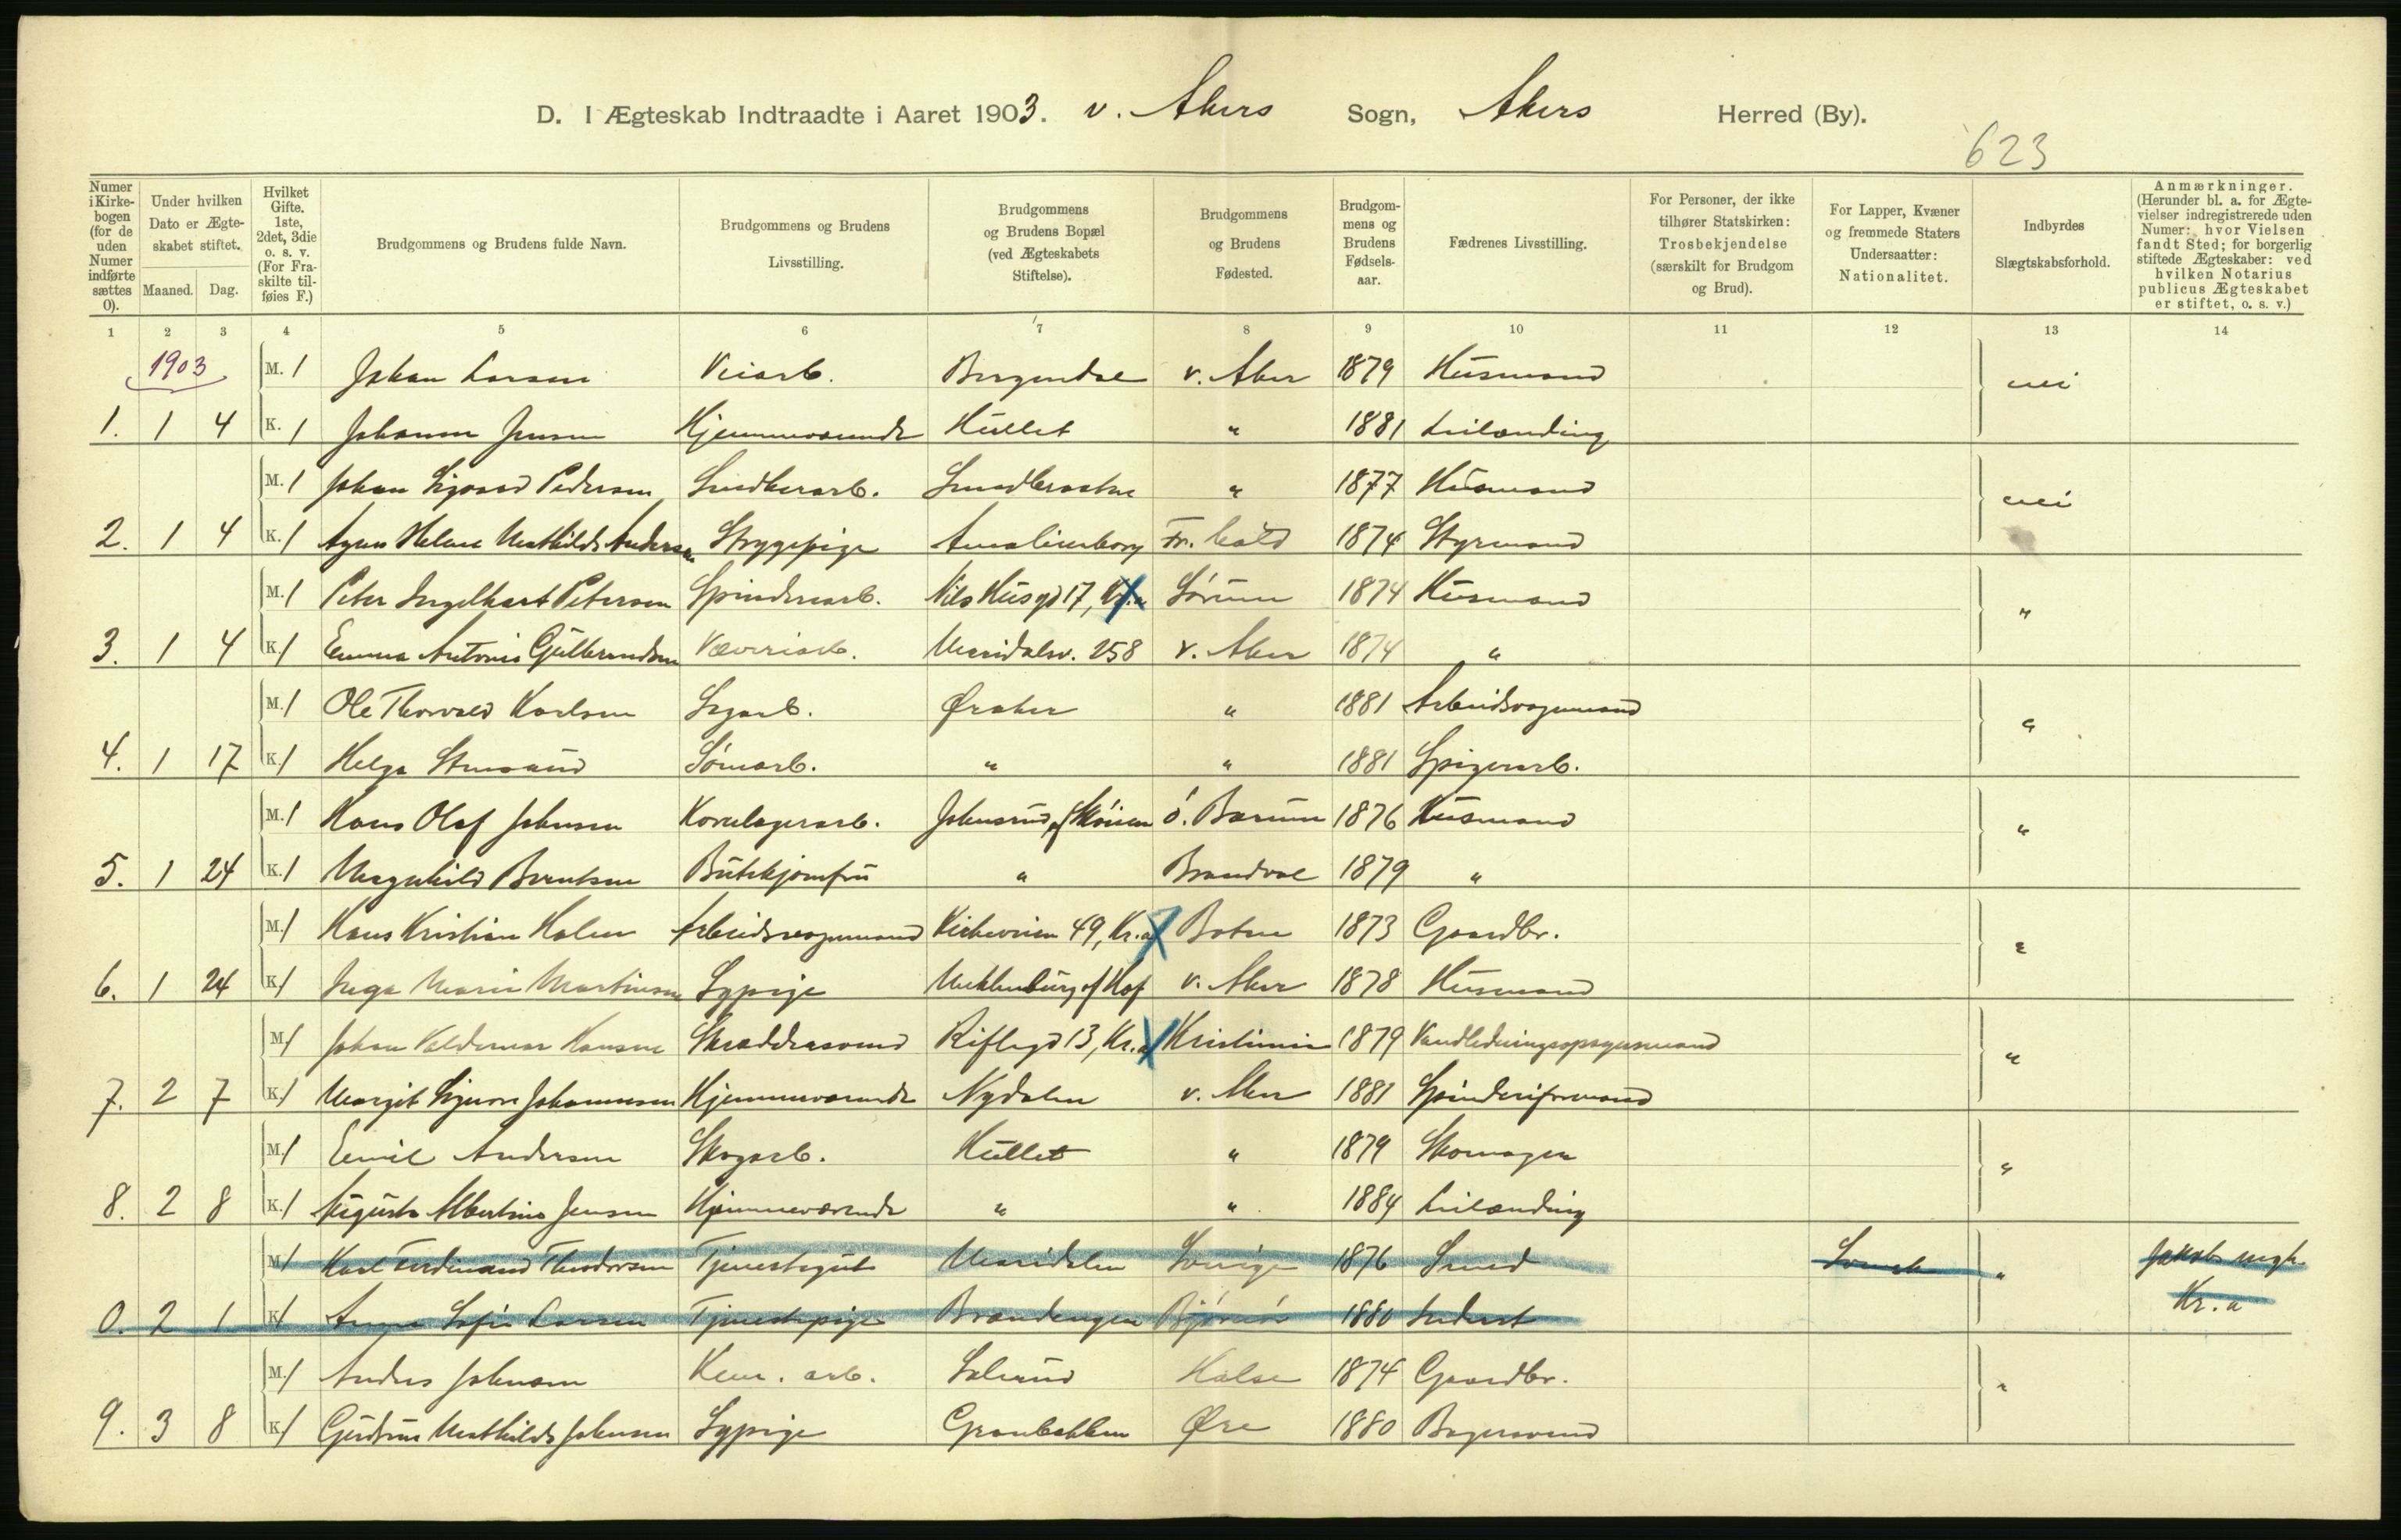 D. I Ægteskab Indtraadte i Aaret 1903. v. Akers Sogn, Akers Herred (By).
623
Numer i Kirkebogen (for de uden Numer indførte sættes 0).
Under hvilken Dato er Ægteskabet stiftet.
Maaned. Dag.
Hvilket Gifte. 1ste, 2det, 3die o. s. v. (For Fraskilte tilføies F.)
Brudgommens og Brudens fulde Navn.
Brudgommens og Brudens Livsstilling.
Brudgommens og Brudens Bopæl (ved Ægteskabets Stiftelse).
Brudgommens og Brudens Fødested.
Brudgommens og Brudens Fødselsaar.
Fædrenes Livsstilling.
For Personer, der ikke tilhører Statskirken: Trosbekjendelse (særskilt for Brudgom og Brud).
For Lapper, Kvæner og fremmede Staters Undersaatter: Nationalitet.
Indbyrdes Slægtskabsforhold.
Anmærkninger. (Herunder bl. a. for Ægtevielser indregistrerede uden Numer: hvor Vielsen fandt Sted; for borgerlig stiftede Ægteskaber: ved hvilken Notarius publicus Ægteskabet er stiftet, o. s. v.)
1 2 3 4 5 6 7 8 9 10 11 12 13 14
1903 M. 1 Johan Larsen Veiarb. Bergendal v. Aker 1879 Husmand nei
1. 1 4 K. 1 Johanne Jensen Hjemmeværende Hullet " 1881 Leilænding
M. 1 Johan Sigvard Pedersen Snedkerarb. Smedbraaten " 1877 Husmand nei
2. 1 4 K. 1 Agnes Helene Mathilde Andersen Strygepige Amalienborg Fr.hald 1874 Styrmand
M. 1 Peter Ingelhart Petersen Spinderiarb. Nils Husgd 17, Kr.a Sørum 1874 Husmand "
3. 1 4 K. 1 Emma Antonie Gulbrandsen Væveriarb. Maridalsv. 258 v. Aker 1874 "
M. 1 Ole Thorvald Karlsen Sagarb. Øraker " 1881 Arbeidsvognmand "
4. 1 17 K. 1 Helga Stensrud Sømarb. " " 1881 Spigerarb.
M. 1 Hans Olaf Johnsen Kornlagerarb. Johnsrud, af Skøien ö. Bærum 1876 Husmand "
5. 1 24 K. 1 Magnhild Berntsen Butikjomfru " Brandval 1879 "
M. 1 Hans Kristian Halen Arbeidsvognmand Kirkeveien 49, Kr.a Botne 1873 Gaardbr. "
6. 1 24 K. 1 Inga Marie Martinsen Sypige Meklenburg af Hof v. Aker 1878 Husmand
M. 1 Johan Valdemar Hansen Skræddersvend Riflegd 13, Kr.a Kristiania 1879 Vandledningsopsynsmand "
7. 2 7 K. 1 Margit Signora Johannesen Hjemmeværende Nydalen v. Aker 1881 Spinderiformand
M. 1 Emil Andersen Skogarb. Hullet " 1879 Skomager "
8. 2 8 K. 1 Augusta Albertine Jensen Hjemmeværende " " 1884 Leilænding
M. 1 Karl Ferdinand Theodorsen Tjenestegut Maridalen Sverige 1876 Smed Svensk " Jakobs mgh.
Kr.a
0. 2 1 K. 1 Anna Sofie Larsen Tjenestepige Brandengen 1880 Inderst
M. 1 Anders Johnsen Kem. arb. Solerud Halse 1874 Gaardbr. "
9. 3 8 K. 1 Gudrun Mathilde Johnsen Sypige Granbakken Øre 1880 Bagersvend